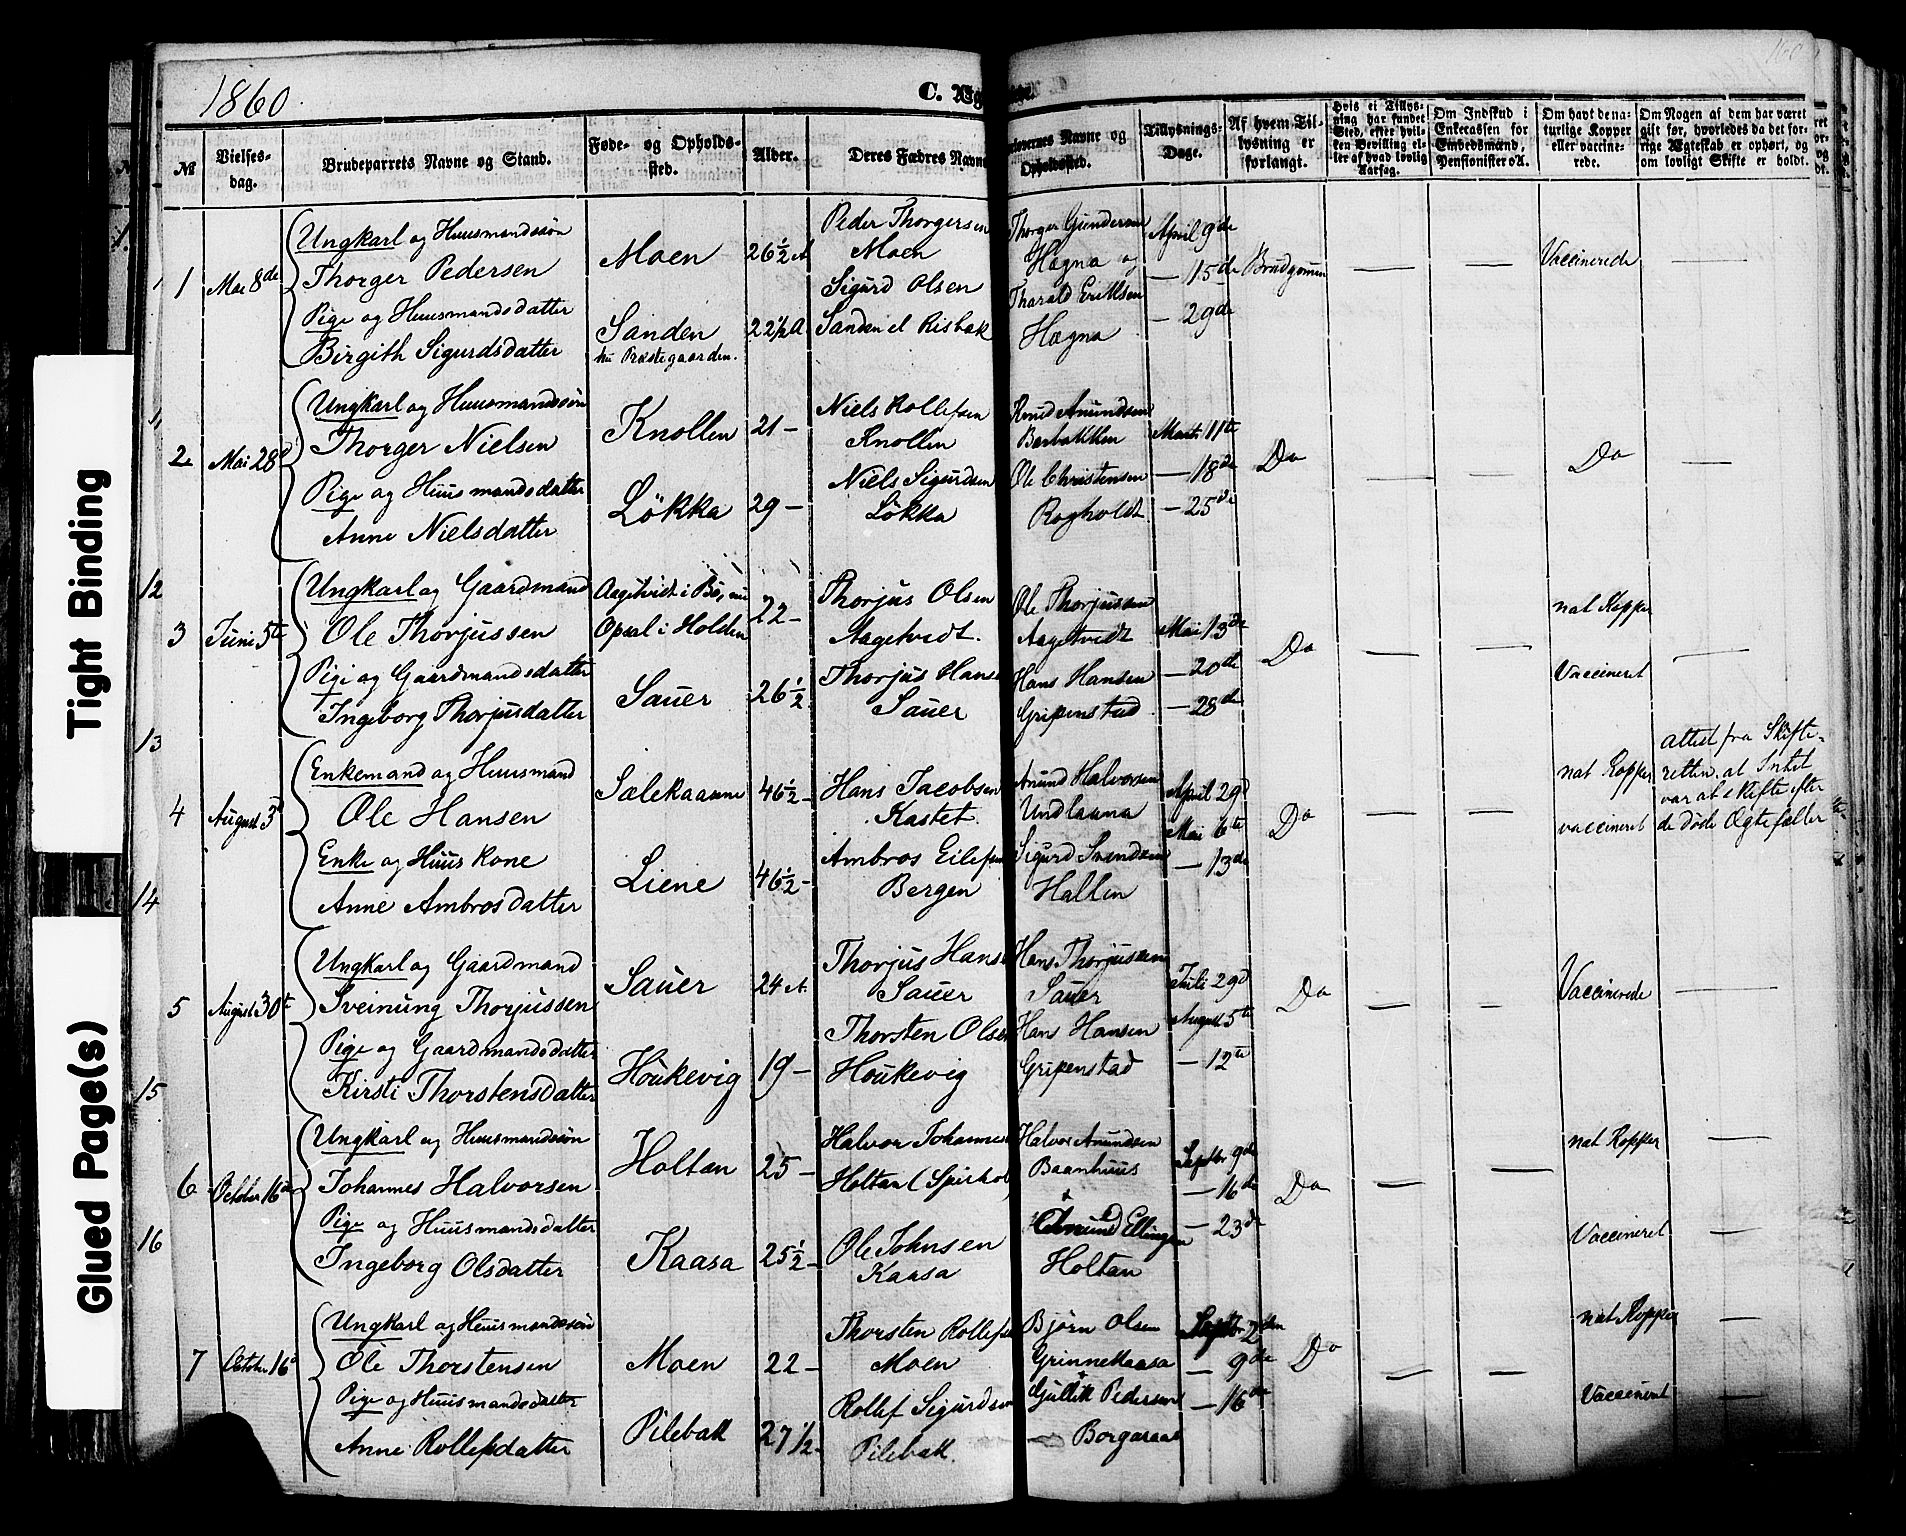 1860.
C. Æg
160
№
Vielses-
dag.
Brudeparrets Navne og Stand.
Føde- og Opholds-
sted.
Alder.
Deres Fædres Navne
orlovernes Navne og
Opholdssted.
Tillysnings-
Dage.
Af hvem Til-
lysning er
forlangt.
Hvis ei Tillys-
ning har fundet
Sted, efter hvil-
ken Bevilling el-
ler af hvad lovlig
Aarsag.
Om Indskud i
Enkecassen for
Embedsmænd,
Pensionister o.A.
Om havt de na-
turlige Kopper
eller vaccine-
rede.
Om Nogen af dem har været
gift før, hvorledes da det for-
rige Ægteskab er ophørt, og
om lovligt Skifte er holdt.
1
Mai 8de
Ungkarl og Huusmandssøn
Thorger Pedersen
Pige og Huusmandsdatter
Birgith Sigurdsdatter
Moen
Sanden
nu Præstegaarden.
26½ A
22½ A
Peder Thorgersen
Moen
Sigurd Olsen
Sanden el Risbak
Thorger Gundersen
Hægna og
Tharald Eriksen
Hægna
April 9de
— 15de
— 29de
Brudgommen
—
—
Vaccinerede
—
2
Mai 28d
Ungkarl og Huusmandssøn
Thorger Nielsen
Pige og Huusmandsdatter
Anne Nielsdatter
Knollen
Løkka
21 —
29 —
Niels Rollefsen
Knollen
Niels Sigurdsen
Løkka
Knud Amundsen
Barbakken
Ole Christensen
Rogholdt
Marts 11te
— 18de
— 25de
Do
—
—
Do
—
3
Juni 5te
Ungkarl og Gaardmand
Ole Thorjussen
Pige og Gaardmandsdatter
Ingeborg Thorjusdatter
Aagetvidt i Bø, nu
Opsal i Holden
Sauer
22 —
26½
Thorjus Olsen
Aagetvedt.
Thorjus Hans
Sauer
Ole Thorjussen
Aagetvedt
Hans Hansen
Gripenstad
Mai 13de
— 20de
— 28de
Do
—
—
nat Kopper
Vaccineret
—
4
August 3d
Enkemand og Huusmand
Ole Hansen
Enke og Huuskone
Anne Ambrosdatter
Liene
46½ —
46½ —
Hans Jacobsen
Kastet.
Ambros Eilefsen
Bergen
Anund Halvorsen
Undlauna
Sigurd Svendsen
Halten
April 29d
Mai 6te
— 13de
Do
—
—
nat Kopper
vaccineret
attest fra Skifte-
retten at Intet
var at skifte efter
de døde Ægtefæller
5
August 30te
Ungkarl og Gaardmand
Sveinung Thorjussen
Pige og Gaardmandsdatter
Kirsti Thorstensdatter
Sauer
Houkevig
24 A.
19 —
Thorjus Hans
Sauer
Thorsten Olsen
Houkevig
Hans Thorjussen
Sauer
Hans Hansen
Gripenstad
Juli 29d
August 5te
— 12te
Do
—
—
Vaccinerede
—
6
October 16de
Ungkarl og Huusmandssøn
Johannes Halvorsen
Pige og Huusmandsdatter
Ingeborg Olsdatter
Holtan
Kaasa
25 —
25½ —
Halvor Johannes
Holtan (Spirhol)
Ole Johnsen
Kaasa
Halvor Anundsen
Baanhuus
Amund Ellingsen
Holtan
Septbr 9de
— 16de
— 23de
Do
—
—
nat Kopper
Vaccineret
—
—
7
Octbr. 16d
Ungkarl og Huusmandssøn
Ole Thorstensen
Pige og Huusmandsdatter
Anne Rollefsdatter
Moen
Pilebak
22 —
27½ —
Thorsten Rollefsen
Moen
Rollef Sigurdsen
Pilebak.
Bjørn Olsen
Grinnekaasa
Gullik Pedersen
Borgaraas
Septbr 2den
— 9de
— 16de
Do
—
—
nat Kopper
Vaccineret
—
—
12
13
14
15
16
Tight Binding
Glued Page(s)